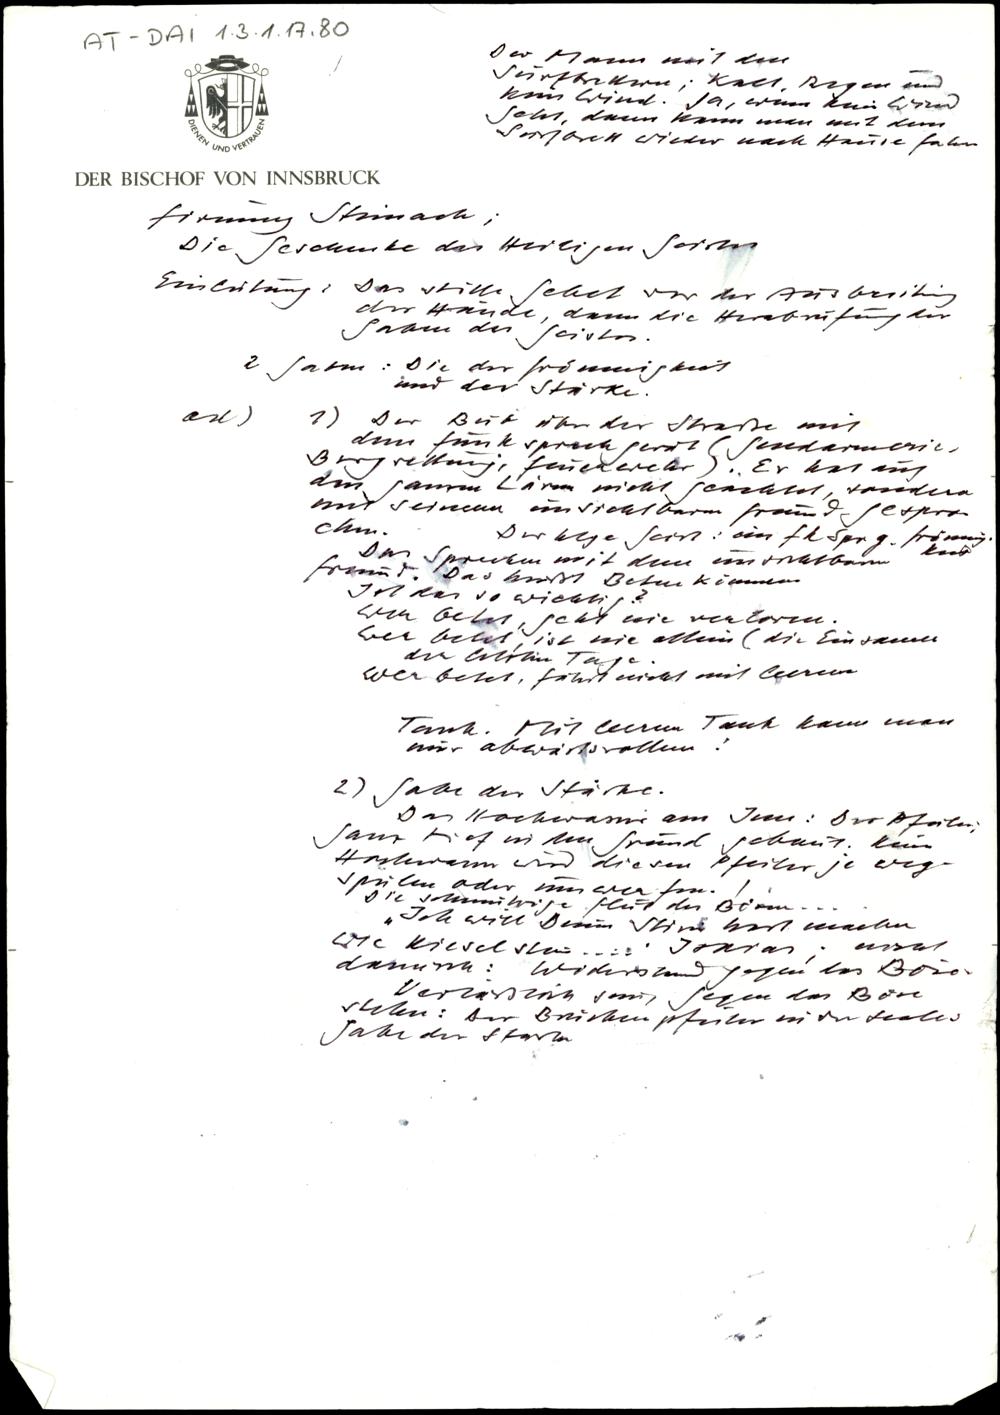 AT-DAI 1.3.1.17.80
Der Mann mit den
Surfbrettern; Kalt, Regen und
kein Wind. Ja, wenn kein Wind
geht, dann kann man mit dem
Surfbrett wieder nach Hause fahrn
DIENEN UND VERTRAUEN
DER BISCHOF VON INNSBRUCK
Firmung Steinach;
Die Geschenke des Heiligen Geistes
Einleitung: Das stille Gebet vor der Ausbreitung
der Hände, dann die Herabrufung der
Gaben des Geistes.
2 Gaben: Die der Frömmigkeit
und der Stärke.
ad) 1) Der Bub über der Straße mit
dem Funksprechgerät (Gendarmerie,
Bergrettung, Feuerwehr). Er hat auf
den ganzen Lärm nicht geachtet, sondern
mit seinem unsichtbaren Freund gespro-
chen. Der Geist: ein Frömmig-
keit
Das Sprechen mit dem unsichtbaren
Freund. Das heißt Beten können
Ist das so wichtig?
Wer betet, geht nie verloren.
Wer betet, ist nie allein (die Einsamen
der Tage.
Wer betet, fährt nicht mit leerem
Tank. Mit leerem Tank kann man
nur abwärtsrollen!
2) Gabe der Stärke.
Das Hochwasser am Inn: Der Pfeiler,
ganz tief in den Grund gebaut. Kein
Hochwasser wird diesen Pfeiler je weg-
spülen oder umwerfen.!
Die schmutzige Flut des Bösen....
"Ich will Deine Stirn hart machen
wie Kieselstein....
damisch: Widerstand gegen das Böse.
Verlässlich sein, gegen das Böse
stehen: Der Brückenpfeiler in der Seele:
Gabe der Stärke